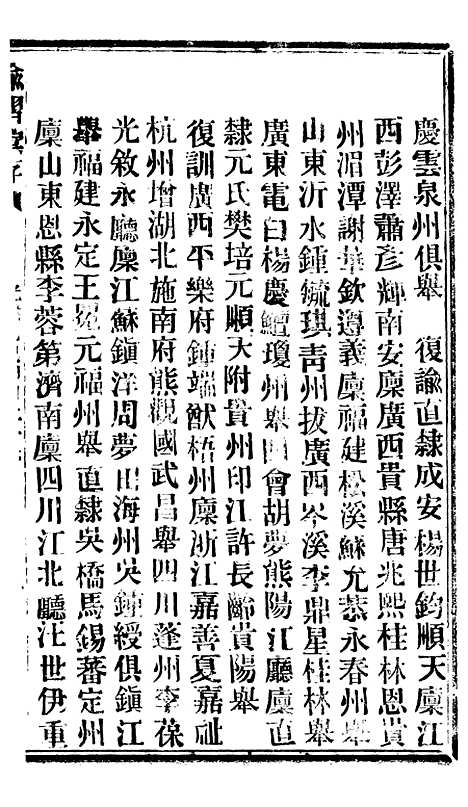 慶雲泉州俱舉　復諭直隸成安楊世鈞順天廩江
西彭澤蕭彥輝南安廩廣西貴縣唐兆熙桂林恩貢
州湄潭謝華欽遵義廩福建松溪蘇允恭永春州舉
山東沂水鍾毓琪青州拔廣西岑溪李鼎星桂林舉
廣東電白楊慶鱣瓊州舉四會胡夢熊陽江廳廩直
隸元氏樊培元順天附貴州印江許長齡貴陽舉
復訓廣西平樂府鍾端猷梧州廩浙江嘉善夏嘉祉
杭州增湖北施南府熊觀國武昌舉四川蓬州李葆
光敘永廳廩江蘇鎮洋周夢出海州吳鍾綬俱鎮江
舉福建永定王冕元福州舉直隸吳橋馬錫蕃定州
廩山東恩縣李蓉第濟南廩四川江北廳江世伊重